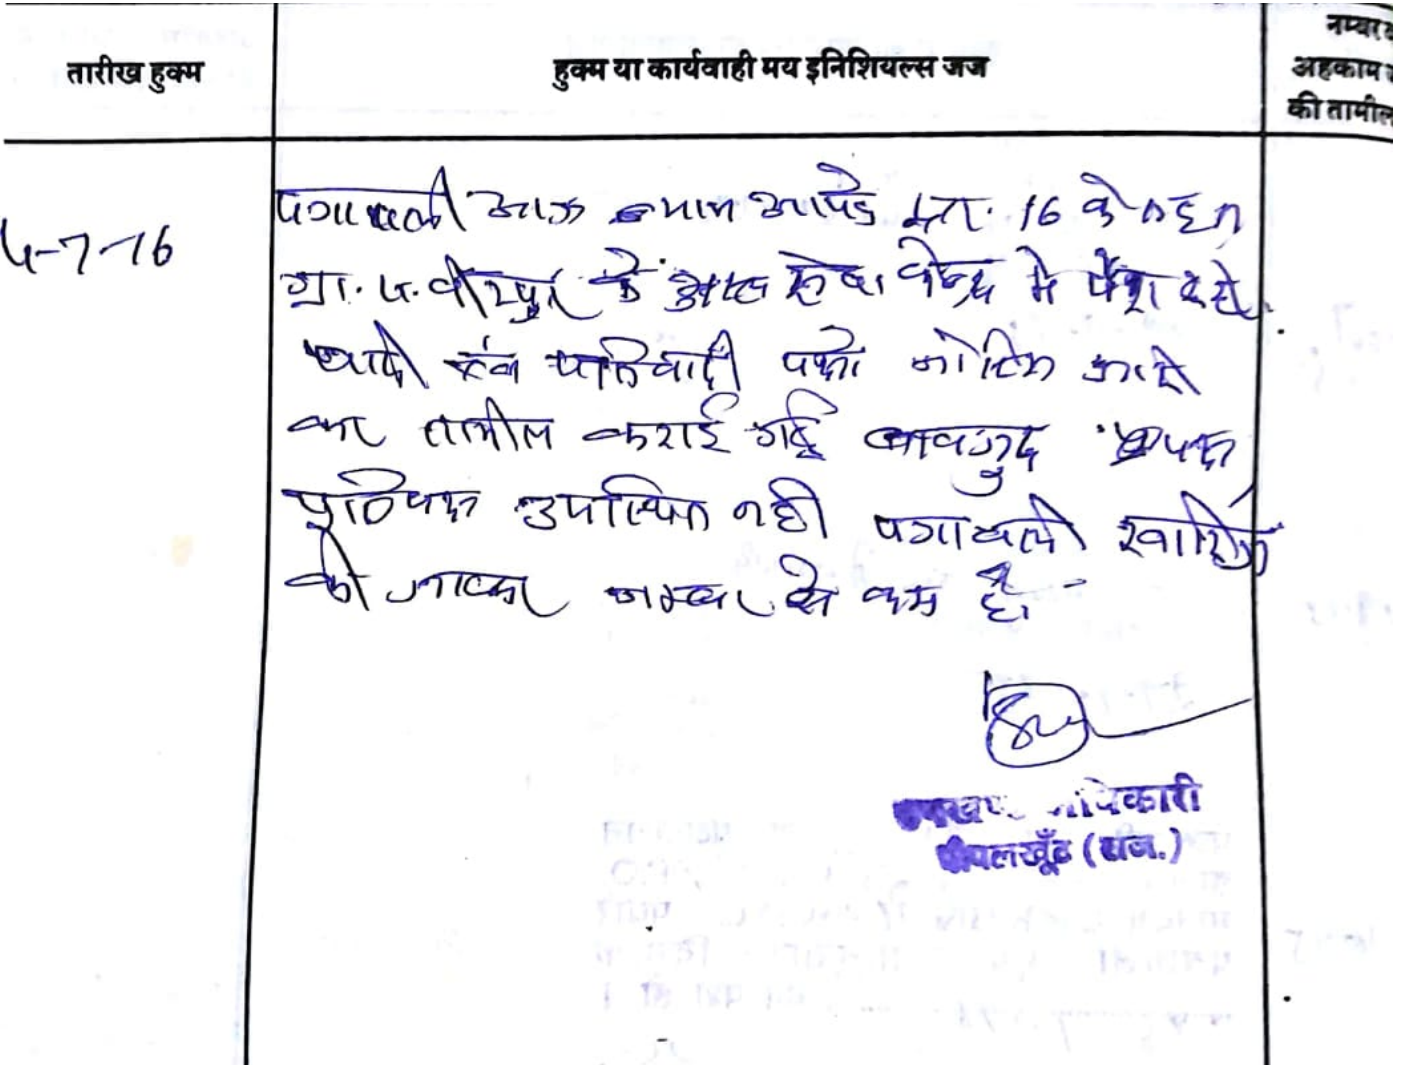 तारीख हुक्म
हुक्म या कार्यवाही मय इनिशियल्स जज
नम्बर व
अहकाम
की तामील
4-7-16
पत्रावली आज न्याय आपके द्वार 16 के तहत
ग्रा. पं. वीरपुर के अटल सेवा केन्द्र में पेश हुई
वादी एवं प्रतिवादी पक्षो नोटिस जारी
कर तामील कराई गई बावजुद पक्ष
उपस्थित नही पत्रावली खारिज
की जाकर नम्बर से कम हो
उपखण्ड अधिकारी
पीपलखूँट (राज.)